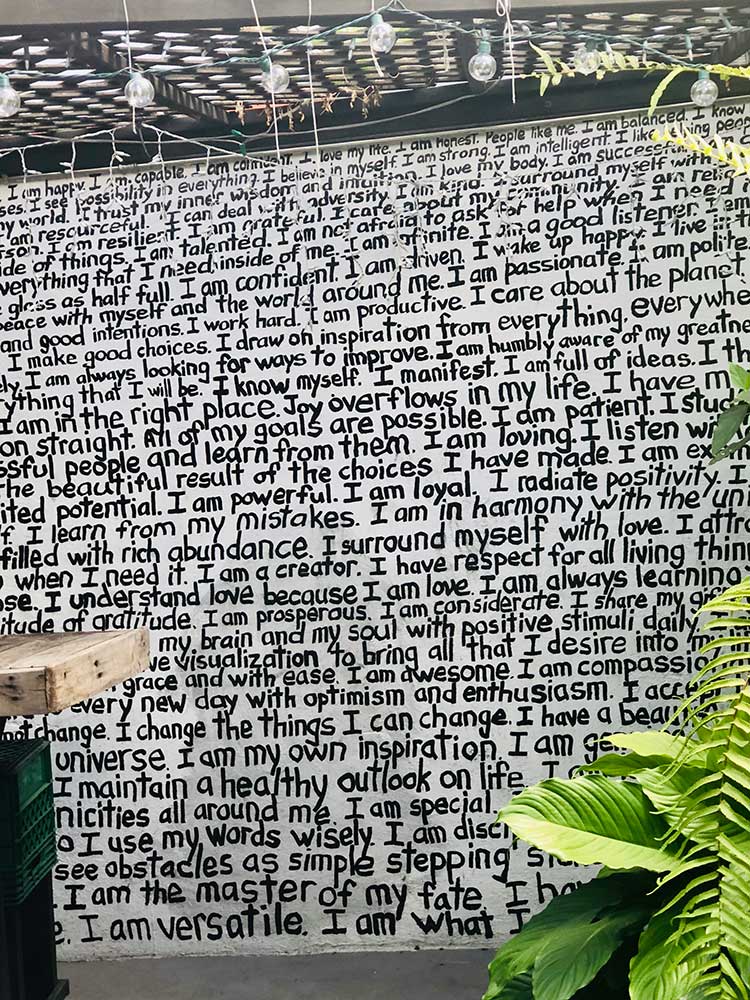 I am happy. I am capable. I am confident. I love my life. I am honest. People like me. I am balanced. I know
I see possibility in everything. I believe in myself. I am strong. I am intelligent. I like
my world. I trust my inner wisdom and intuition. I love my body. I am successful
I am resourceful. I can deal with adversity. I am kind. I surround myself with
I am resilient. I am grateful. I care about my community. I am
ide of things. I am talented. I am not afraid to ask for help when I need
verything that I need inside of me. I am infinite. I am a good listener. I am
glass as half full. I am confident. I am driven. I wake up happy. I live in
peace with myself and the world around me. I am passionate. I am polite
and good intentions. I work hard. I am productive. I care about the planet
I make good choices. I draw on inspiration from everything, everywhe
ly. I am always looking for ways to improve. I am humbly aware of my greatne
ything that I will be. I know myself. I manifest. I am full of ideas. I th
I am in the right place. Joy overflows in my life. I have m
on straight. All of my goals are possible. I am patient. I stud
ssful people and learn from them. I am loving. I listen wi
the beautiful result of the choices I have made. I am ex
ited potential. I am powerful. I am loyal. I radiate positivity. I
f. I learn from my mistakes. I am in harmony with the un
filled with rich abundance. I surround myself with love. I attr
when I need it. I am a creator. I have respect for all living thin
ose. I understand love because I am love. I am always learning
itude of gratitude. I am prosperous. I am considerate. I share my gif
my brain and my soul with positive stimuli daily
ve visualization to bring all that I desire into m
grace and with ease. I am awesome. I am compassio
every new day with optimism and enthusiasm. I acce
not change. I change the things I can change. I have a beau
universe. I am my own inspiration. I am ge
I maintain a healthy outlook on life. I
nicities all around me. I am special.
o I use my words wisely. I am disci
see obstacles as simple stepping st
. I am the master of my fate. I ha
e. I am versatile. I am what I